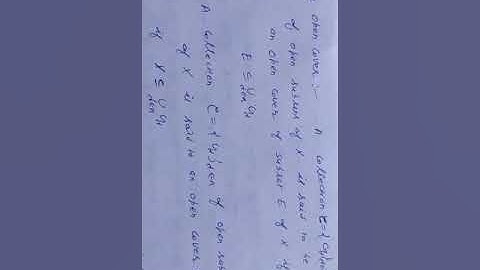 open cover :- A collection C = { Gλ}λ∈Λ
of open subsets of X is said to be
an open cover of subset E of X if
E ⊆ ∪ Gλ
λ∈Λ
A collection C = { Gλ}λ∈Λ of open
of X is said to an open cover
if X ⊆ ∪ Gλ
λ∈Λ